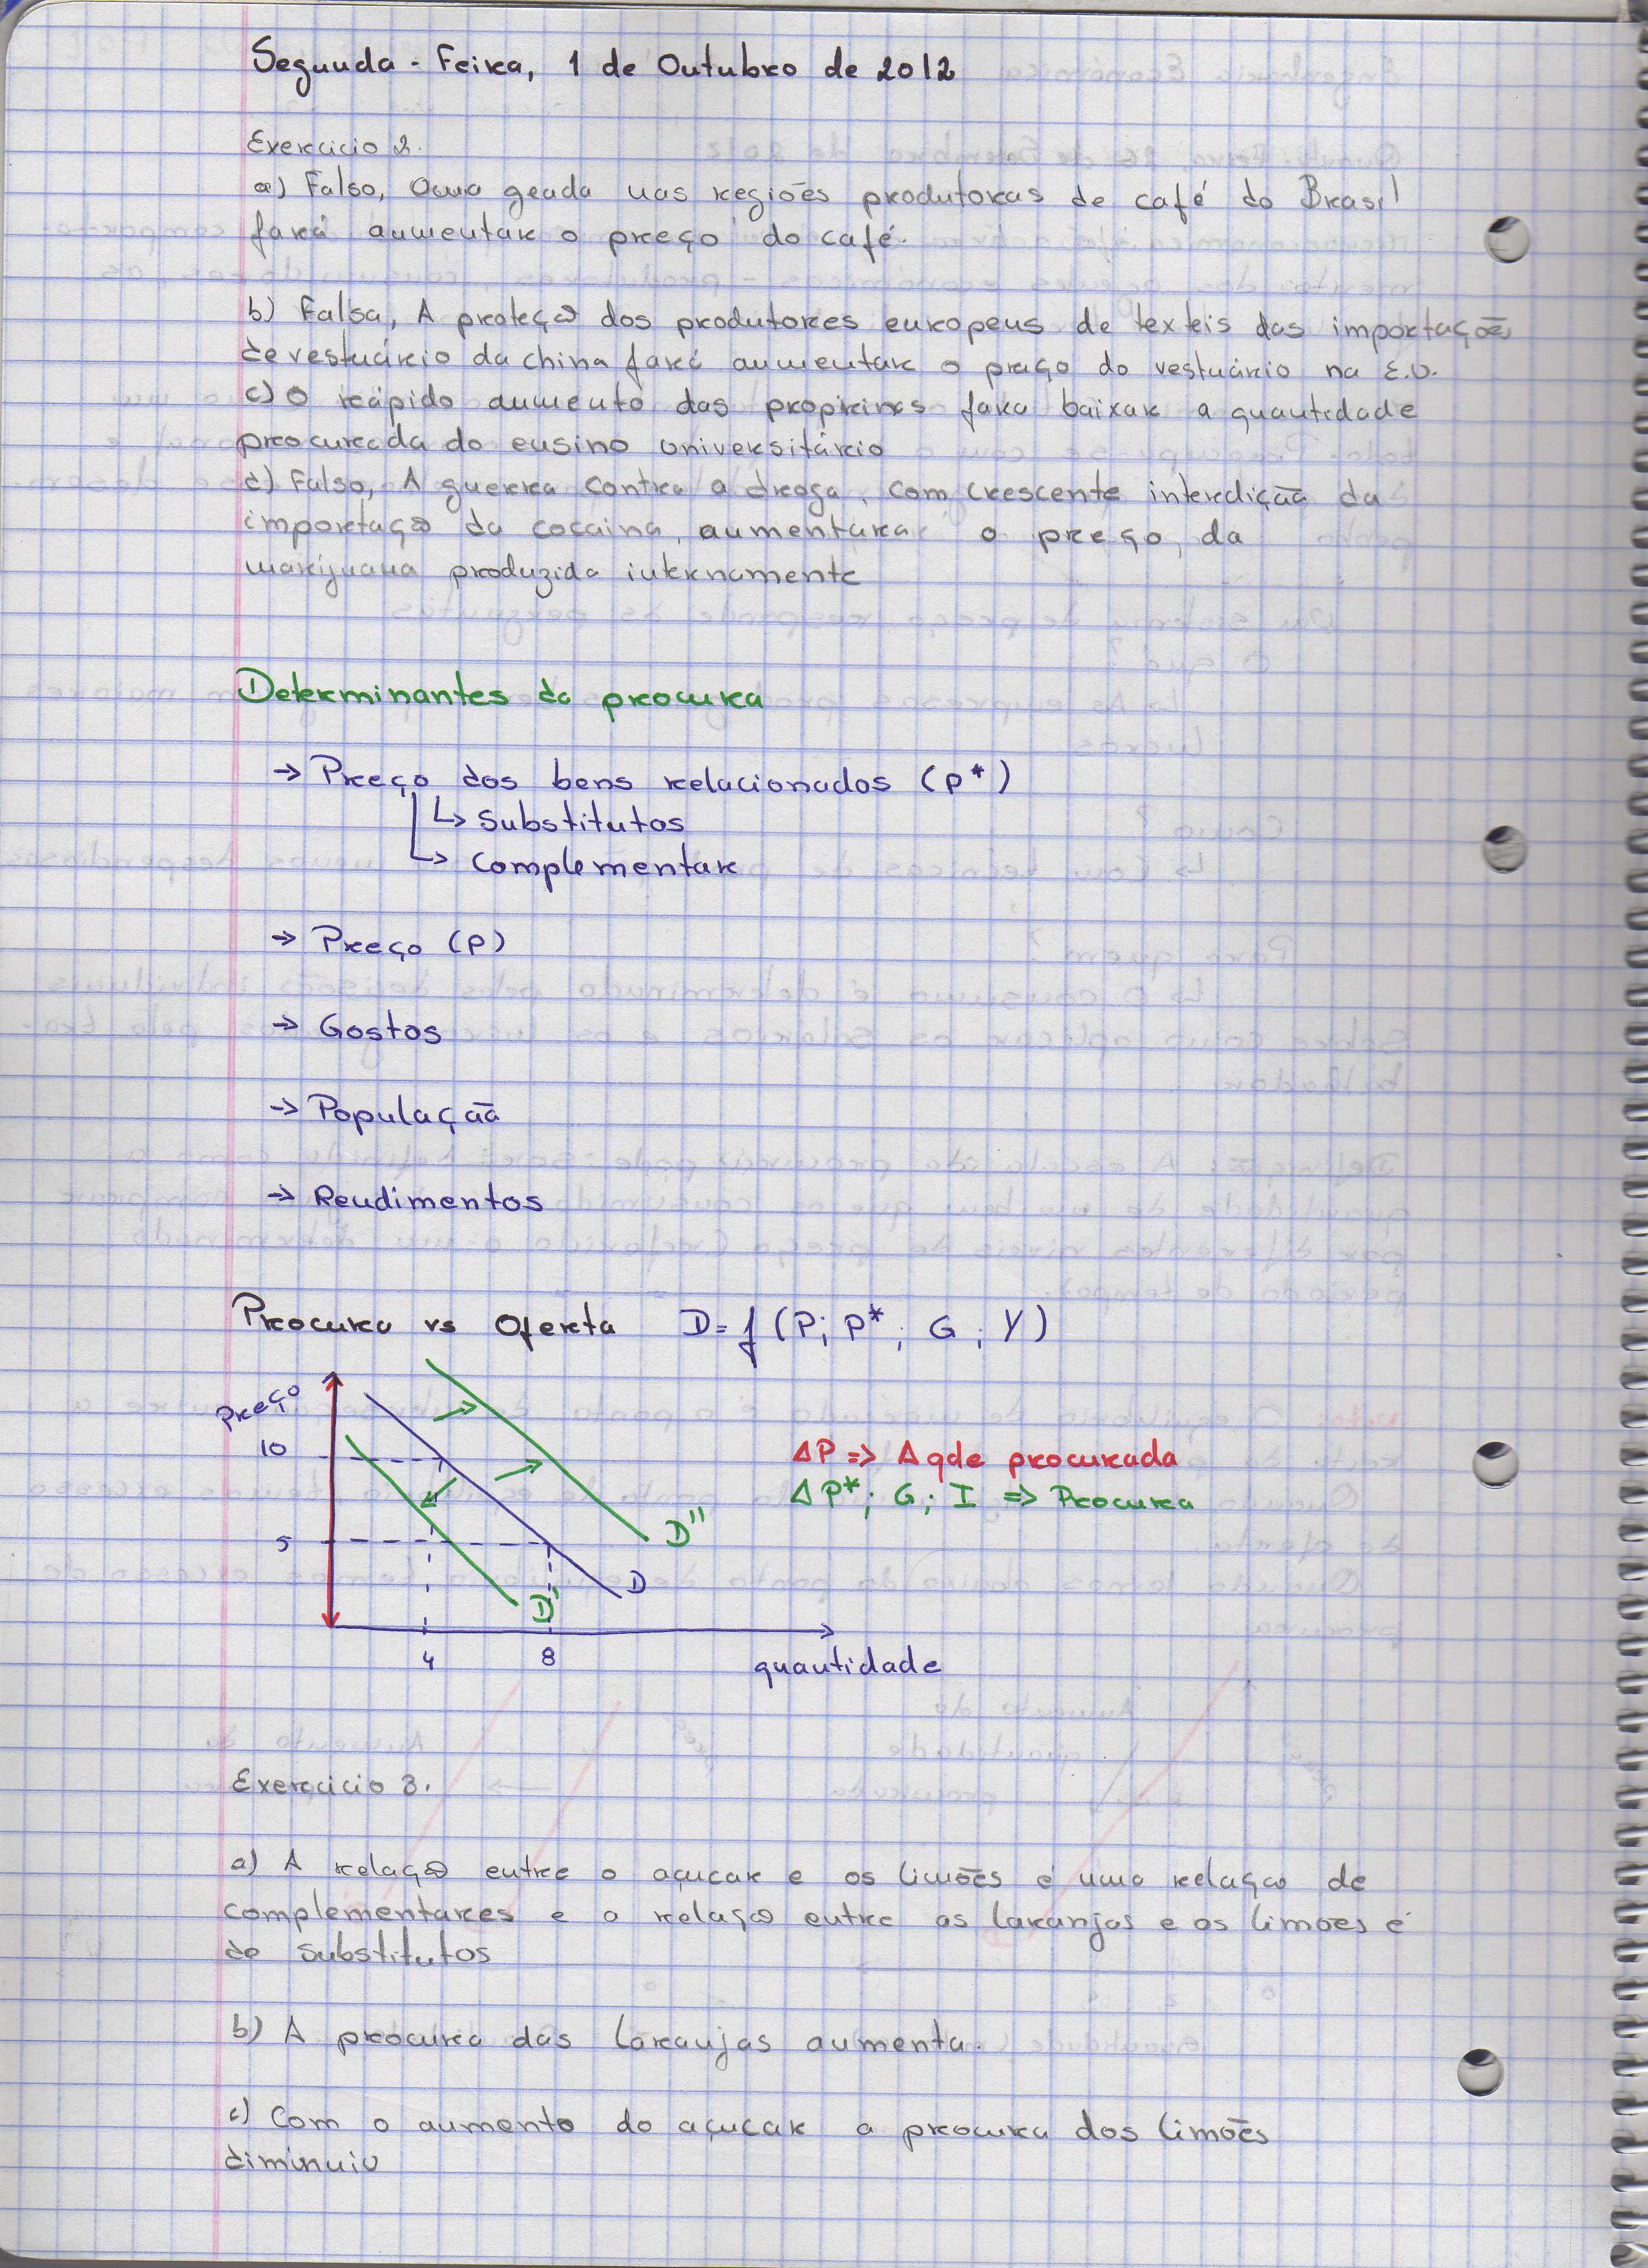 Segunda - Feira, 1 de Outubro de 2012
Exercicio 2.
a) Falso, Uma geada nas regiões produtoras de café do Brasil
fará aumentar o preço do café.
b) Falsa, A proteção dos produtores europeus de texteis das importações
de vestuário da china fará aumentar o preço do vestuário na E.U.
c) O rápido aumento das propinas fara baixar a quantidade
procurada do ensino universitário
d) Falso, A guerra contra a droga, com crescente interdição da
importação da cocaina, aumentara o preço, da
marijuana produzida internamente
Determinantes da procura
→ Preço dos bens relacionados (P*)
↳ Substitutos
↳ Complementar
→ Preço (P)
→ Gostos
→ População
→ Rendimentos
Procura vs Oferta D = f (P; P*; G; Y)
Preço
10
5
D''
D
D'
4 8
quantidade
ΔP => Δ qde procurada
ΔP*; G; I => Procura
Exercicio 3.
a) A relação entre o açucar e os limões é uma relação de
complementares e a relação entre as laranjas e os limões é
de substitutos
b) A procura das laranjas aumenta.
c) Com o aumento do açucar a procura dos limões
diminuiu